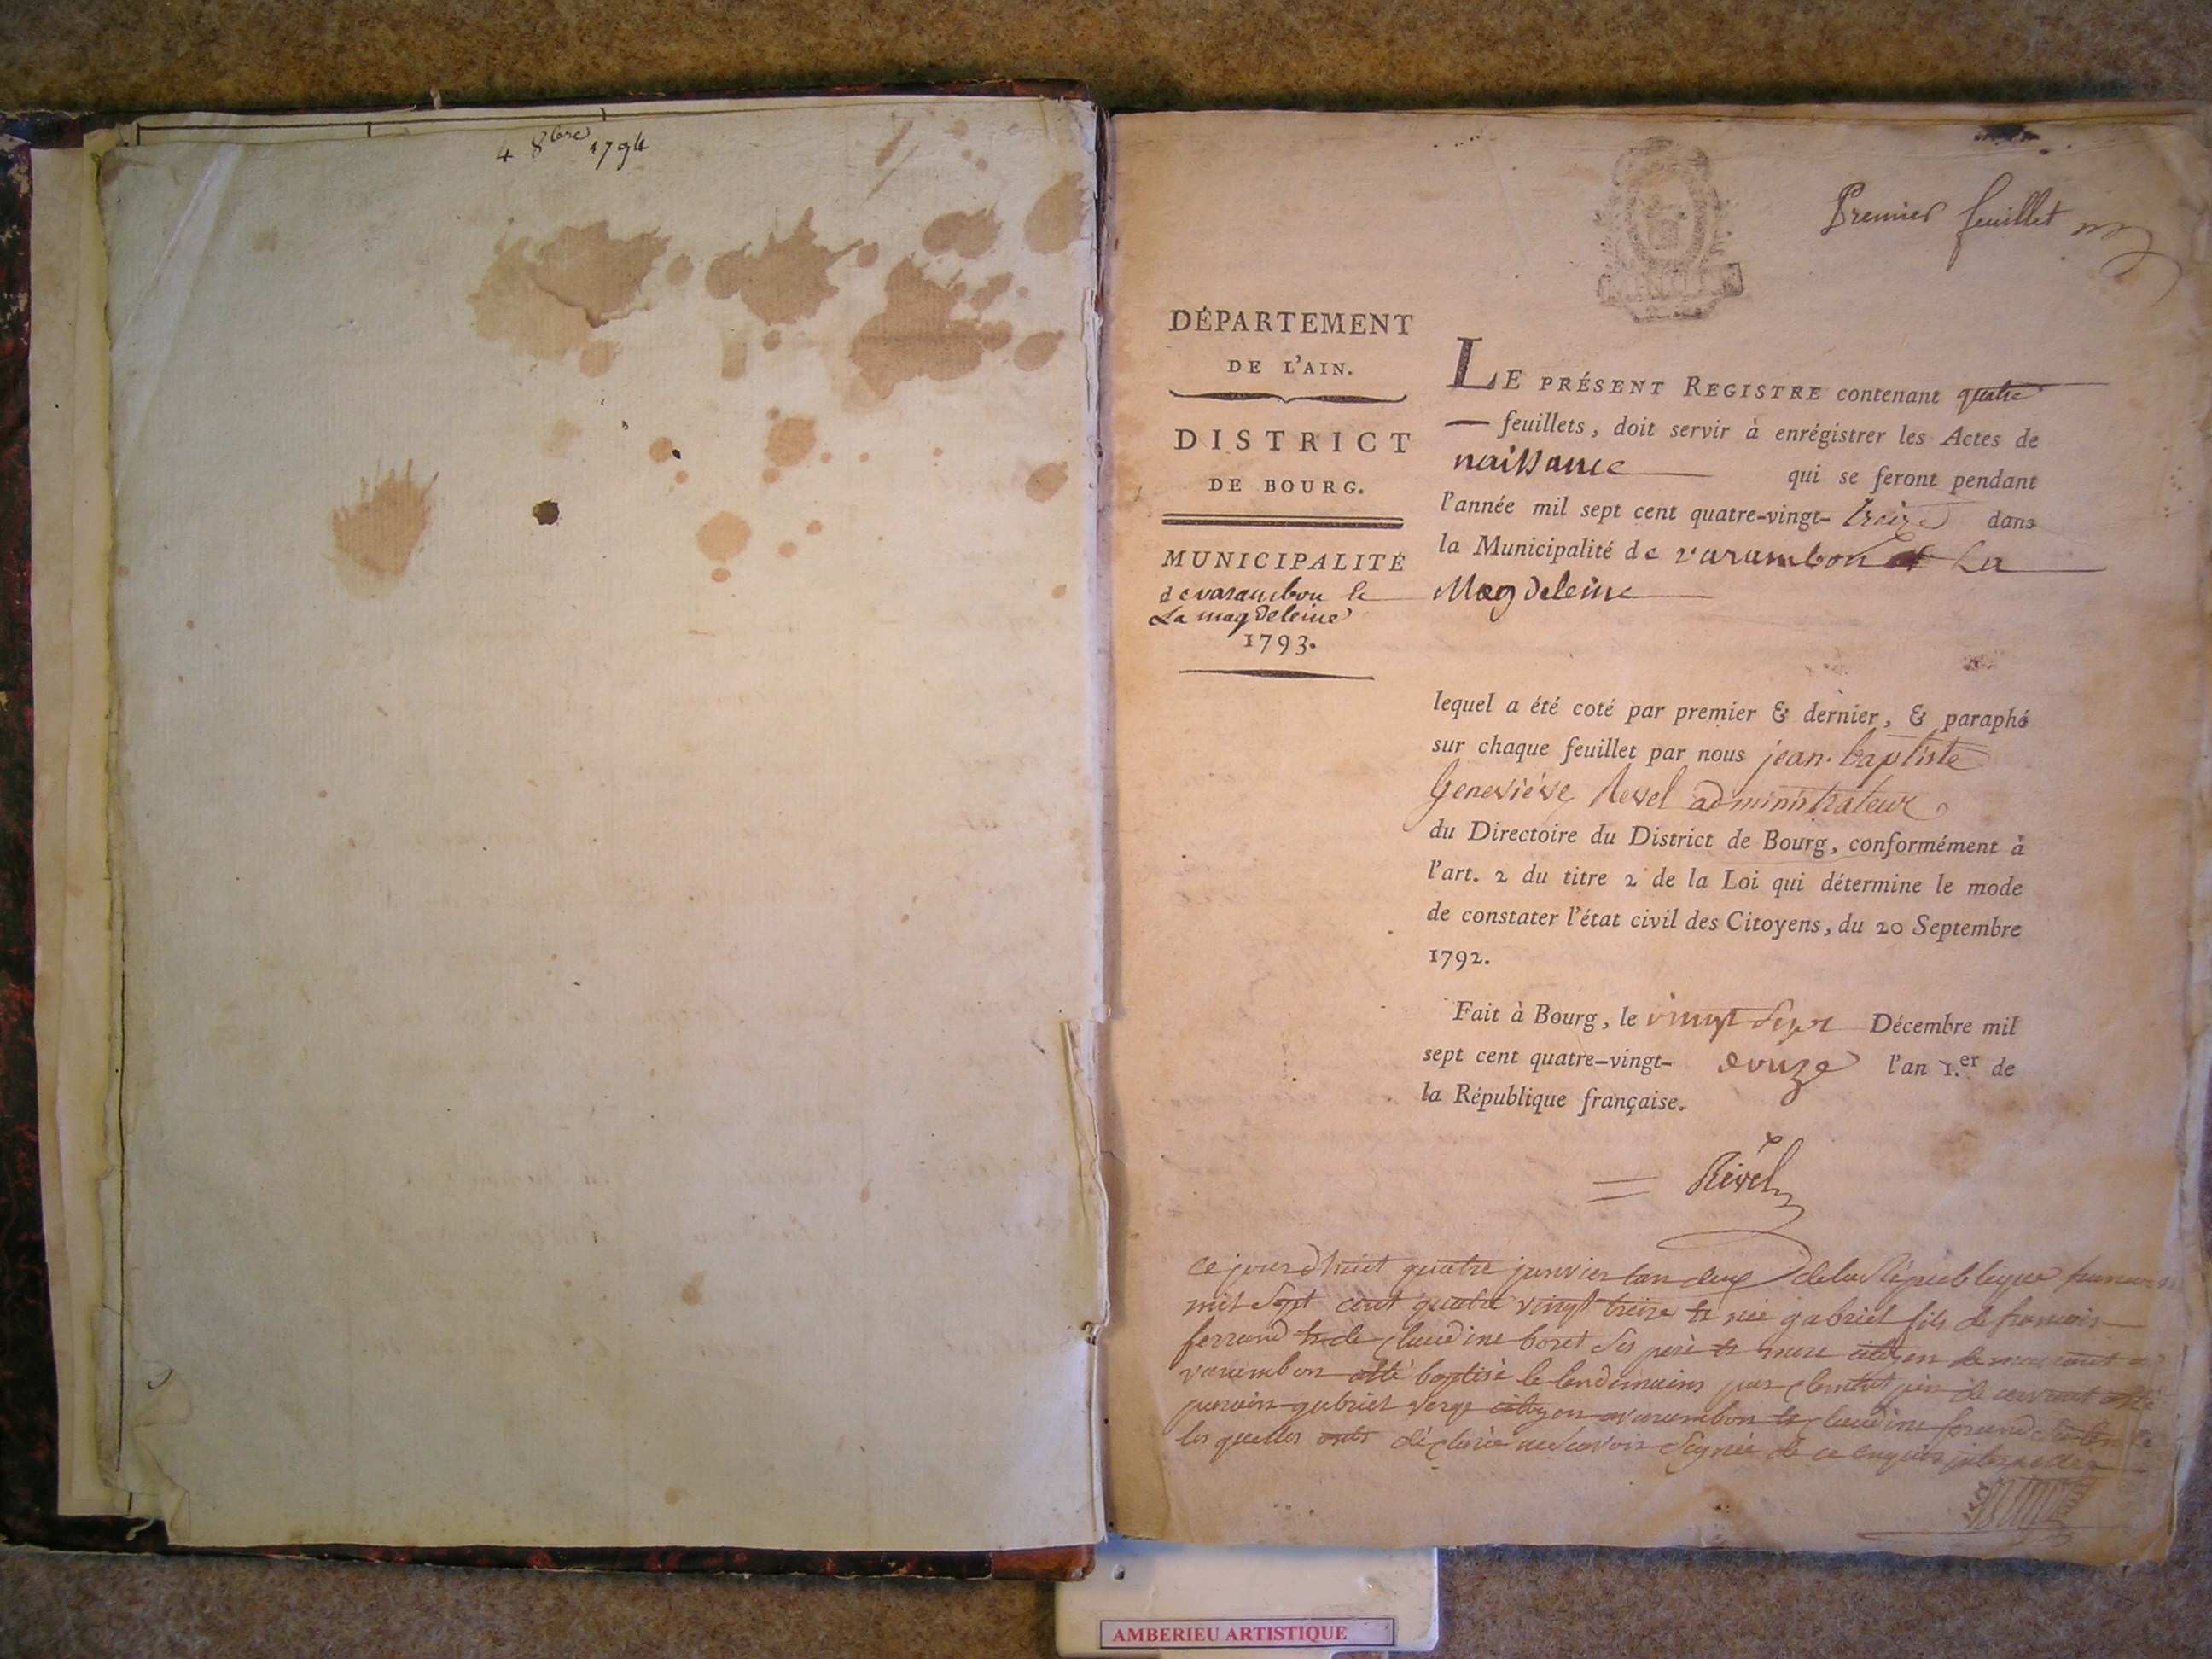 4 8bre 1794
Premier feuillet
DÉPARTEMENT
DE L'AIN.
DISTRICT
DE BOURG.
MUNICIPALITÉ
de varambon le
La magdeleine
1793.
LE PRÉSENT REGISTRE contenant quatre
— feuillets, doit servir à enrégistrer les Actes de
naissance qui se feront pendant
l'année mil sept cent quatre-vingt- treize dans
la Municipalité de varambon et La
Magdeleine
lequel a été coté par premier & dernier, & paraphé
sur chaque feuillet par nous jean-baptiste
Geneviève Revel administrateur
du Directoire du District de Bourg, conformément à
l'art. 2 du titre 2 de la Loi qui détermine le mode
de constater l'état civil des Citoyens, du 20 Septembre
1792.
Fait à Bourg, le vingt sept Décembre mil
sept cent quatre-vingt- douze l'an 1.er de
la République française.
Revel
ce jourdhuit quatre janvier lan deux de la République
mil sept cent quatre vingt treize et née gabriel fils de francois
ferrand et de claudine boret ses père et mere citoyen
varambon baptisé le lendemains par
parain gabriel verge citoyen a varambon et claudine ferrand
les quelles onts déclarée ne scavoir signée de ce enquis
AMBERIEU ARTISTIQUE